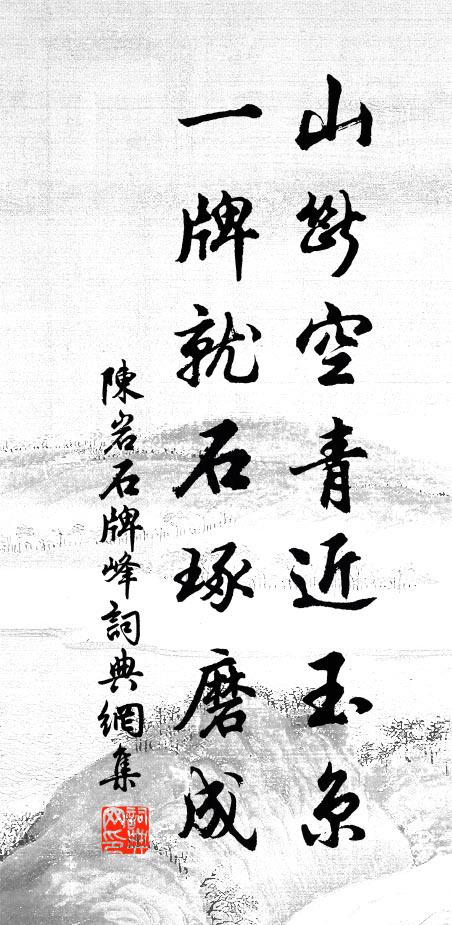 山斷空青近玉京
一牌就石琢磨成
陳岩石牌峰詞典網集
詞典网印